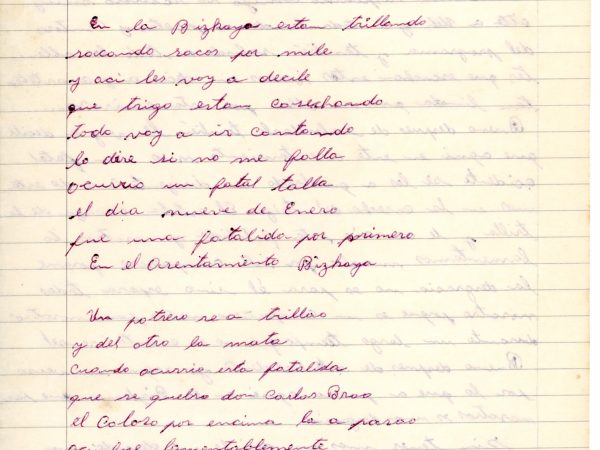 En la Bizkaya estan trillando
sacando sacos por mile
y aci les voy a decile
que trigo estan cosechando
todo voy a ir contando
lo dire si no me falla
ocurrio un fatal talla
el dia nueve de Enero
fue una fatalida por primero
En el Asentamiento Bizkaya
Un potrero se a trillao
y del otro la mata
cuando ocurrio esta fatalida
que se quebro don Carlos Brao
el Coloso por encima la a parao
aci fue lamentablemente